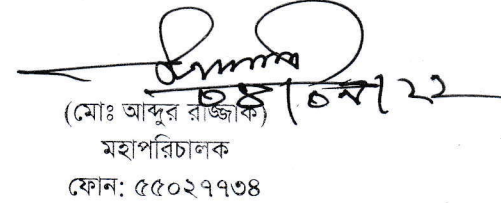 ০৪|০৭|২২
(মোঃ আব্দুর রাজ্জাক)
মহাপরিচালক
ফোন: ৫৫০২৭৭৩৪